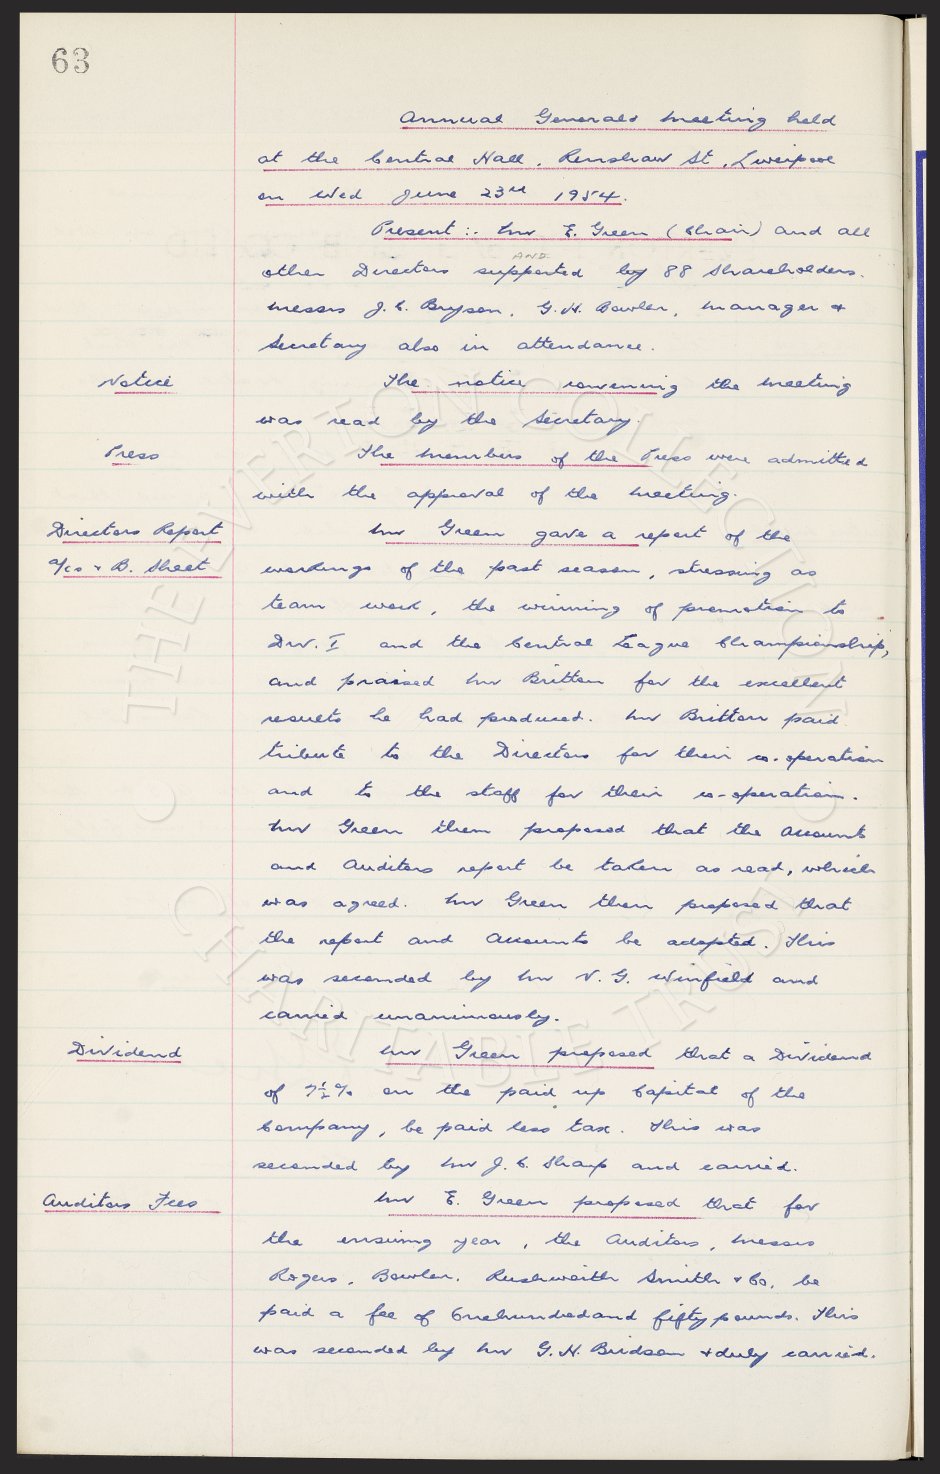 63
Annual General Meeting held
at the Central Hall, Renshaw St, Liverpool
on Wed June 23rd 1954.
Present :- Mr E. Green (Chair) and all
AND
other Directors supported by 88 Shareholders.
Messrs J. C. Bryson, G. H. Bowler, Manager &
Secretary also in attendance.
Notice
The notice convening the Meeting
was read by the Secretary.
Press
The Members of the Press were admitted
with the approval of the Meeting.
Directors Report
a/cs & B. Sheet
Mr Green gave a report of the
workings of the past season, stressing as
team work, the winning of promotion to
Div. I and the Central League Championship,
and praised Mr Britton for the excellent
results he had produced. Mr Britton paid
tribute to the Directors for their co-operation
and to the staff for their co-operation.
Mr Green then proposed that the Accounts
and Auditors report be taken as read, which
was agreed. Mr Green then proposed that
the report and Accounts be adopted. This
was seconded by Mr V. G. Winfield and
carried unanimously.
Dividend
Mr Green proposed that a Dividend
of 7½% on the paid up Capital of the
Company, be paid less tax. This was
seconded by Mr J. C. Sharp and carried.
Auditors Fees
Mr E. Green proposed that for
the ensuing year, the Auditors, Messrs
Rogers, Bowler, Rushworth Smith & Co. be
paid a fee of Onehundredand fifty pounds. This
was seconded by Mr G. H. Bridson & duly carried.
THE EVERTON COLLECTION
CHARITABLE TRUST